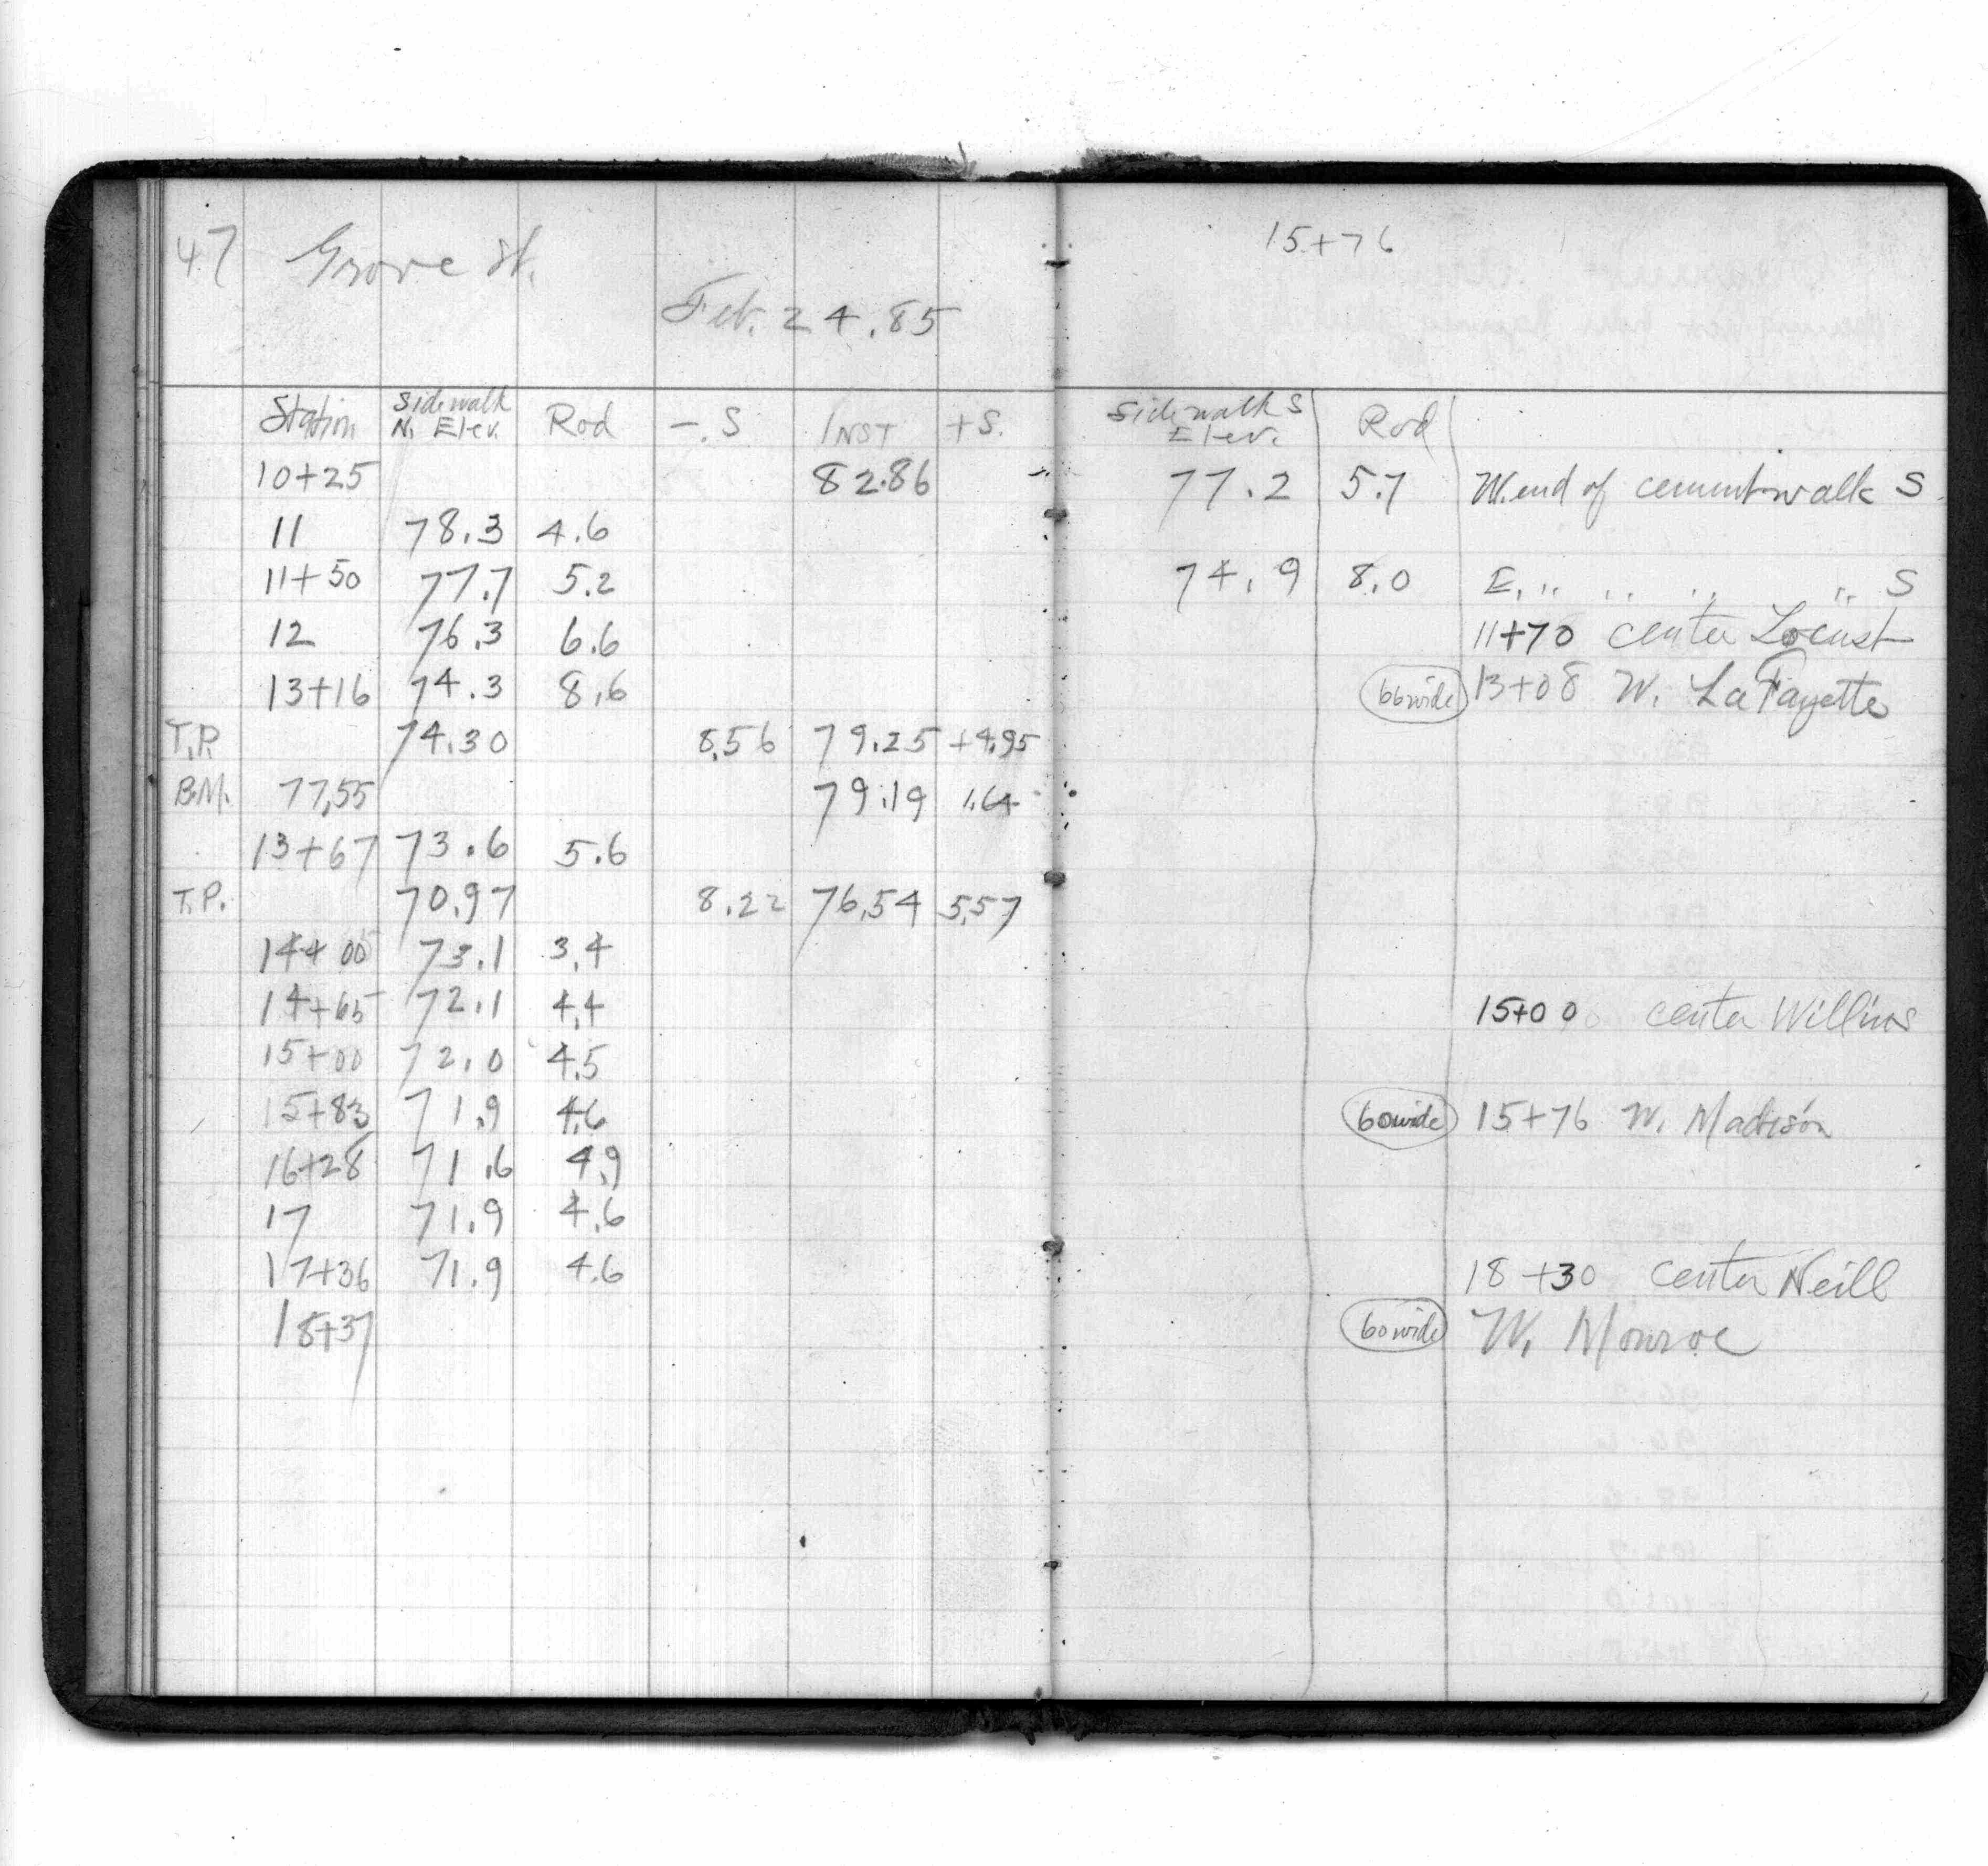 47 Grove St.
Feb. 24.85
Station Sidewalk N. Elev. Rod -.S INST +S.
10+25 82.86
11 78.3 4.6
11+50 77.7 5.2
12 76.3 6.6
13+16 74.3 8.6
T.P. 74.30 8.56 79.25 +4.95
B.M. 77.55 79.19 1.64
13+67 73.6 5.6
T.P. 70.97 8.22 76.54 5.57
14+00 73.1 3.4
14+65 72.1 4.4
15+00 72.0 4.5
15+83 71.9 4.6
16+28 71.6 4.9
17 71.9 4.6
17+36 71.9 4.6
18+37
15+76
Sidewalk S Elev. Rod
77.2 5.7 W. end of cement walk S
74.9 8.0 E. " " " " S
11+70 center Locust
66 wide 13+08 W. LaFayette
15+00 center
60 wide 15+76 W. Madison
18+30 center Neill
60 wide W. Monroe